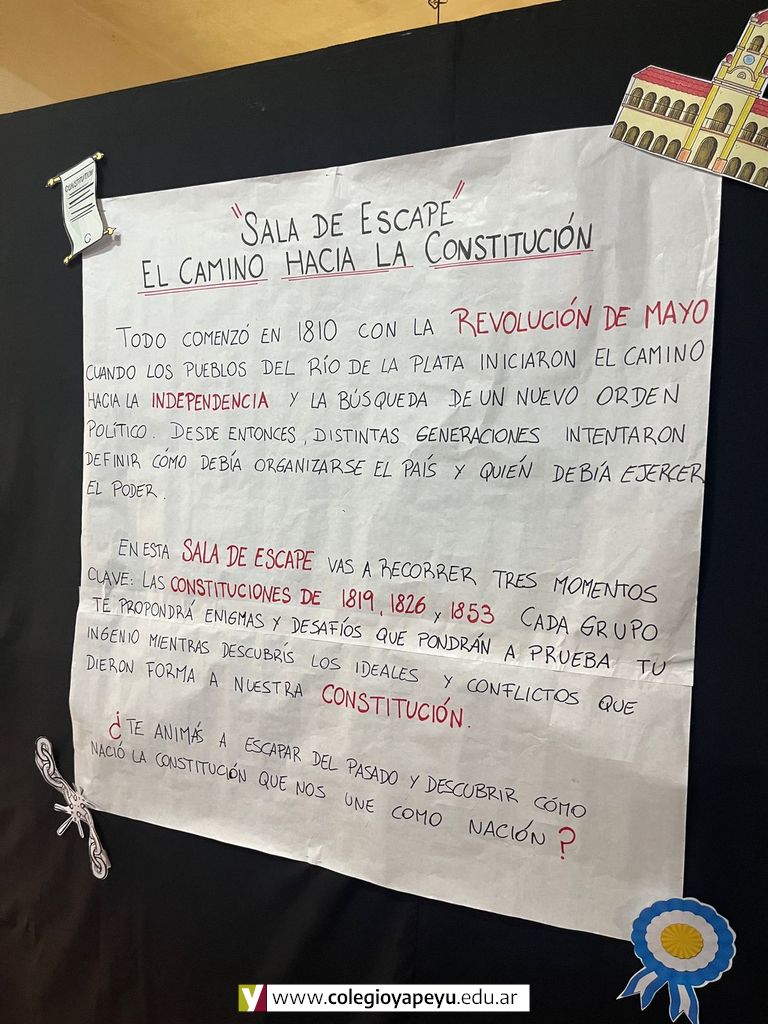 CONSTITUTION
"SALA DE ESCAPE"
EL CAMINO HACIA LA CONSTITUCIÓN
TODO COMENZÓ EN 1810 CON LA REVOLUCIÓN DE MAYO
CUANDO LOS PUEBLOS DEL RÍO DE LA PLATA INICIARON EL CAMINO
HACIA LA INDEPENDENCIA Y LA BÚSQUEDA DE UN NUEVO ORDEN
POLÍTICO. DESDE ENTONCES, DISTINTAS GENERACIONES INTENTARON
DEFINIR CÓMO DEBÍA ORGANIZARSE EL PAÍS Y QUIÉN DEBÍA EJERCER
EL PODER.
EN ESTA SALA DE ESCAPE VAS A RECORRER TRES MOMENTOS
CLAVE: LAS CONSTITUCIONES DE 1819, 1826 y 1853 CADA GRUPO
TE PROPONDRÁ ENIGMAS Y DESAFÍOS QUE PONDRÁN A PRUEBA TU
INGENIO MIENTRAS DESCUBRÍS LOS IDEALES Y CONFLICTOS QUE
DIERON FORMA A NUESTRA CONSTITUCIÓN.
¿TE ANIMÁS A ESCAPAR DEL PASADO Y DESCUBRIR CÓMO
NACIÓ LA CONSTITUCIÓN QUE NOS UNE COMO NACIÓN?
Y www.colegioyapeyu.edu.ar